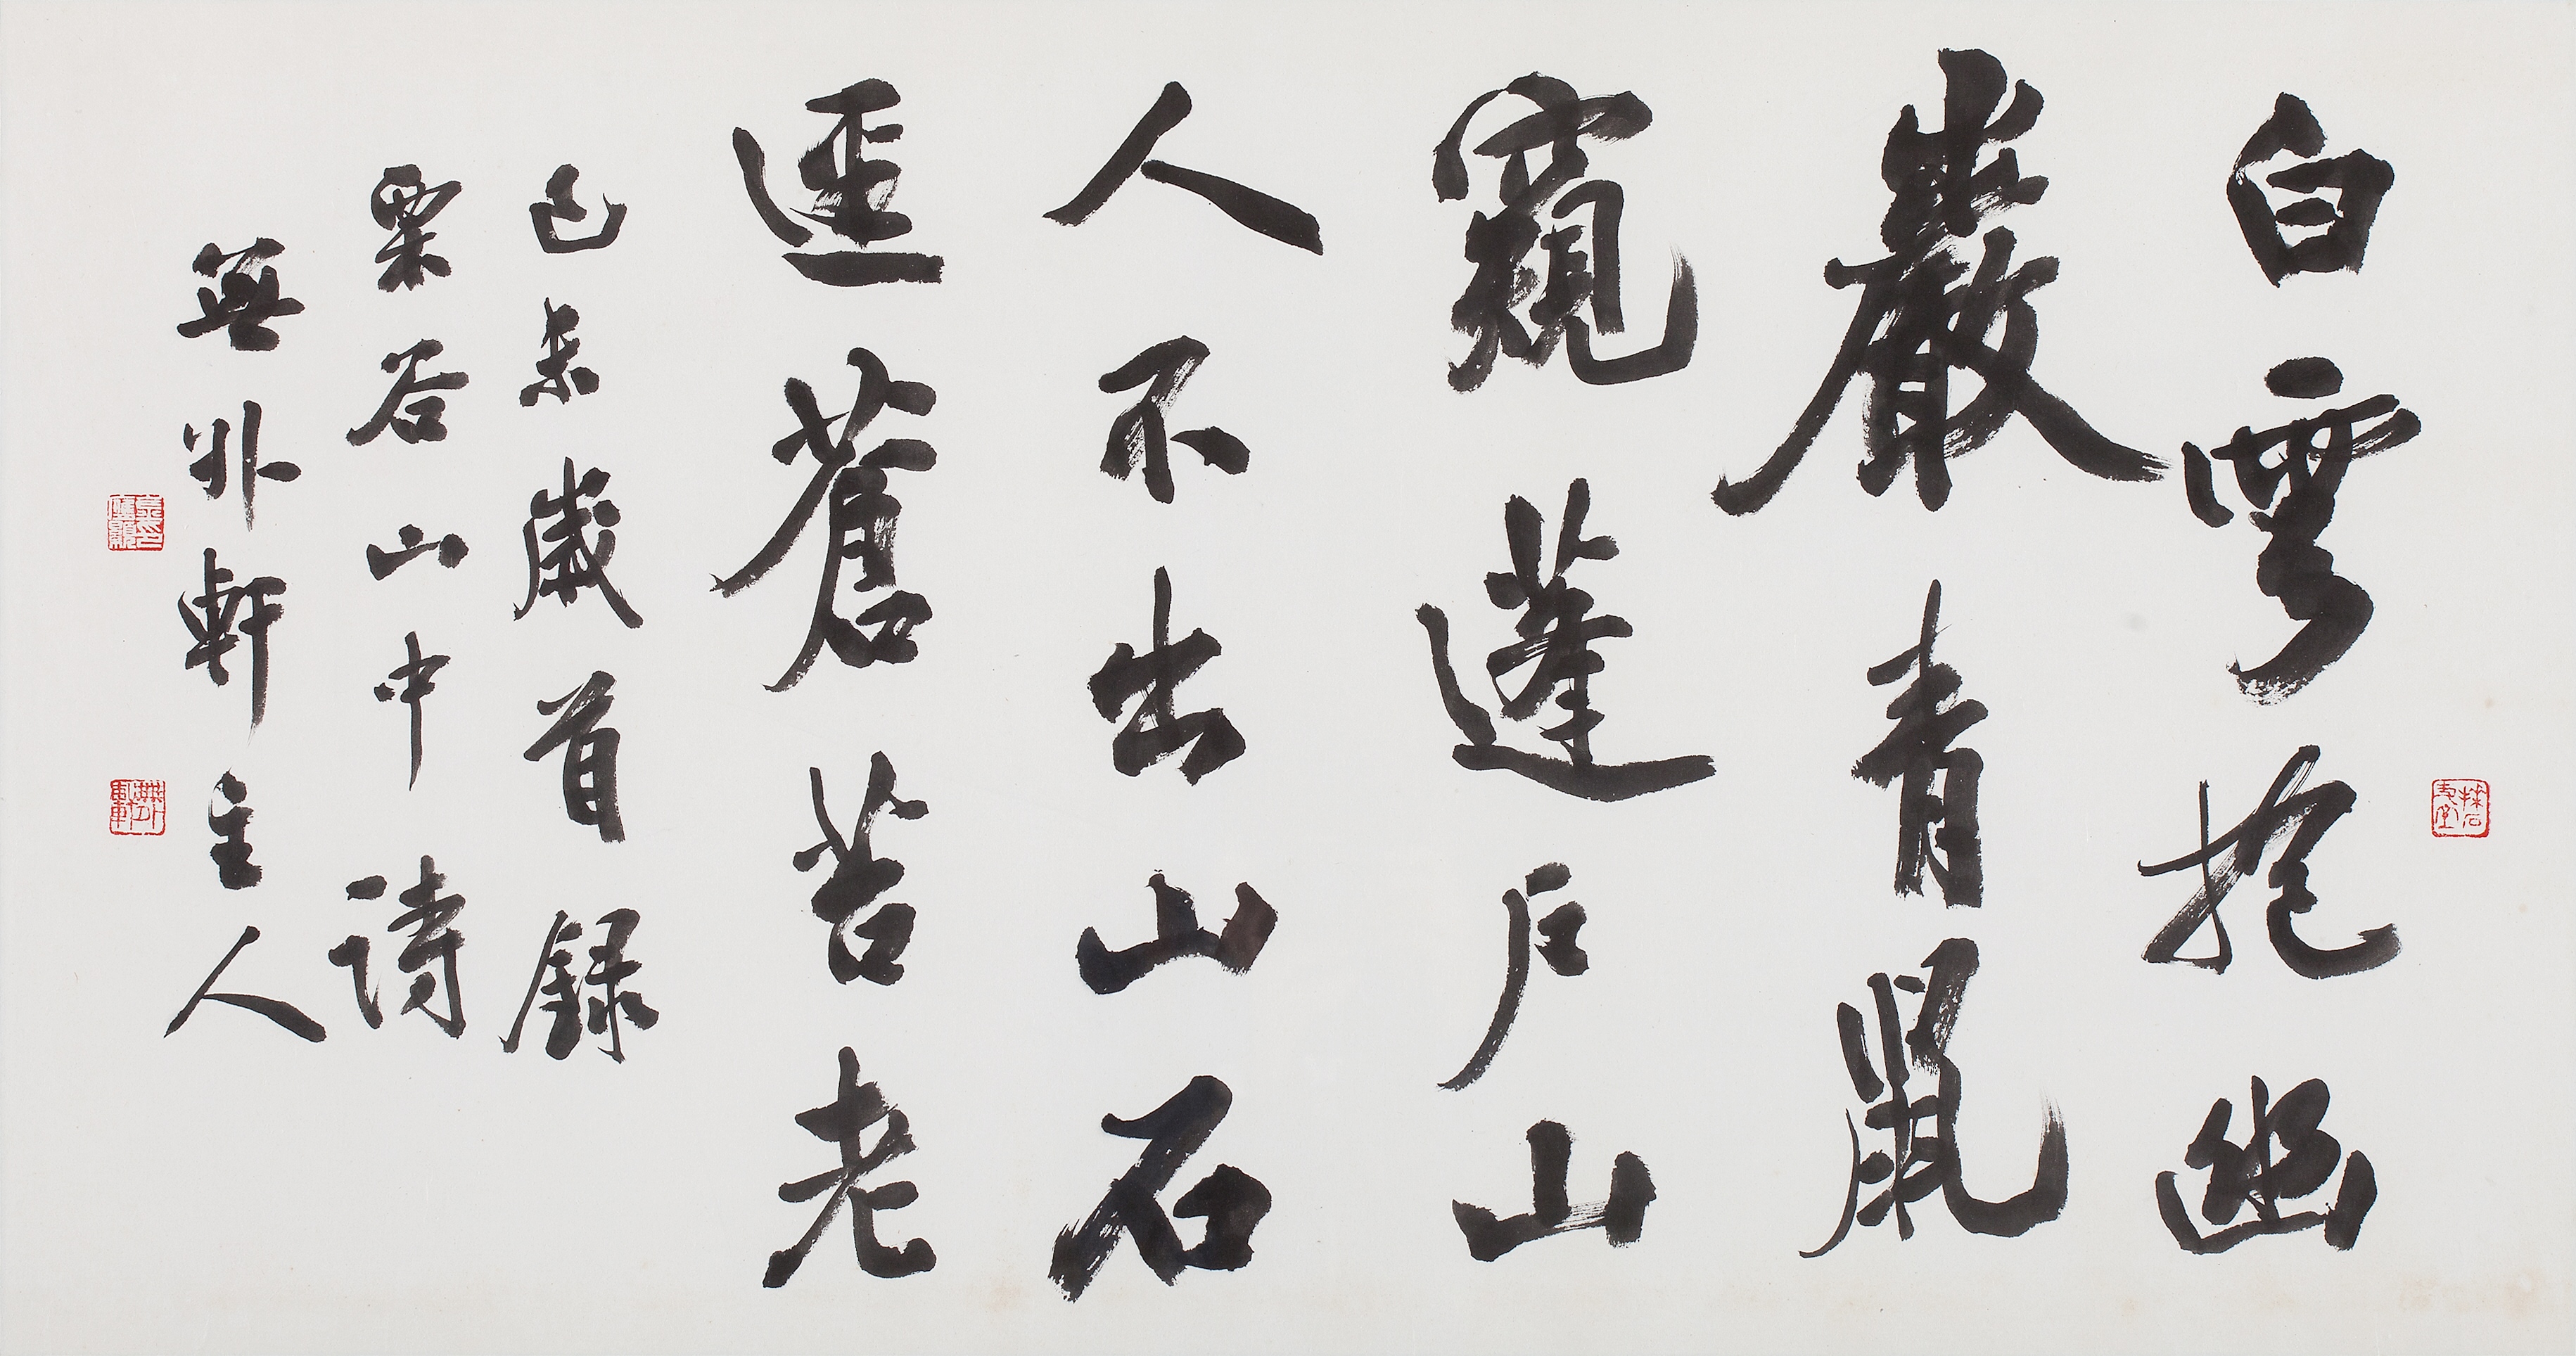 白雲抱幽
巖青鼠
窺蓬戶山
人不出山石
逕蒼苔老
己未歲首錄
栗谷山中詩
無外軒主人